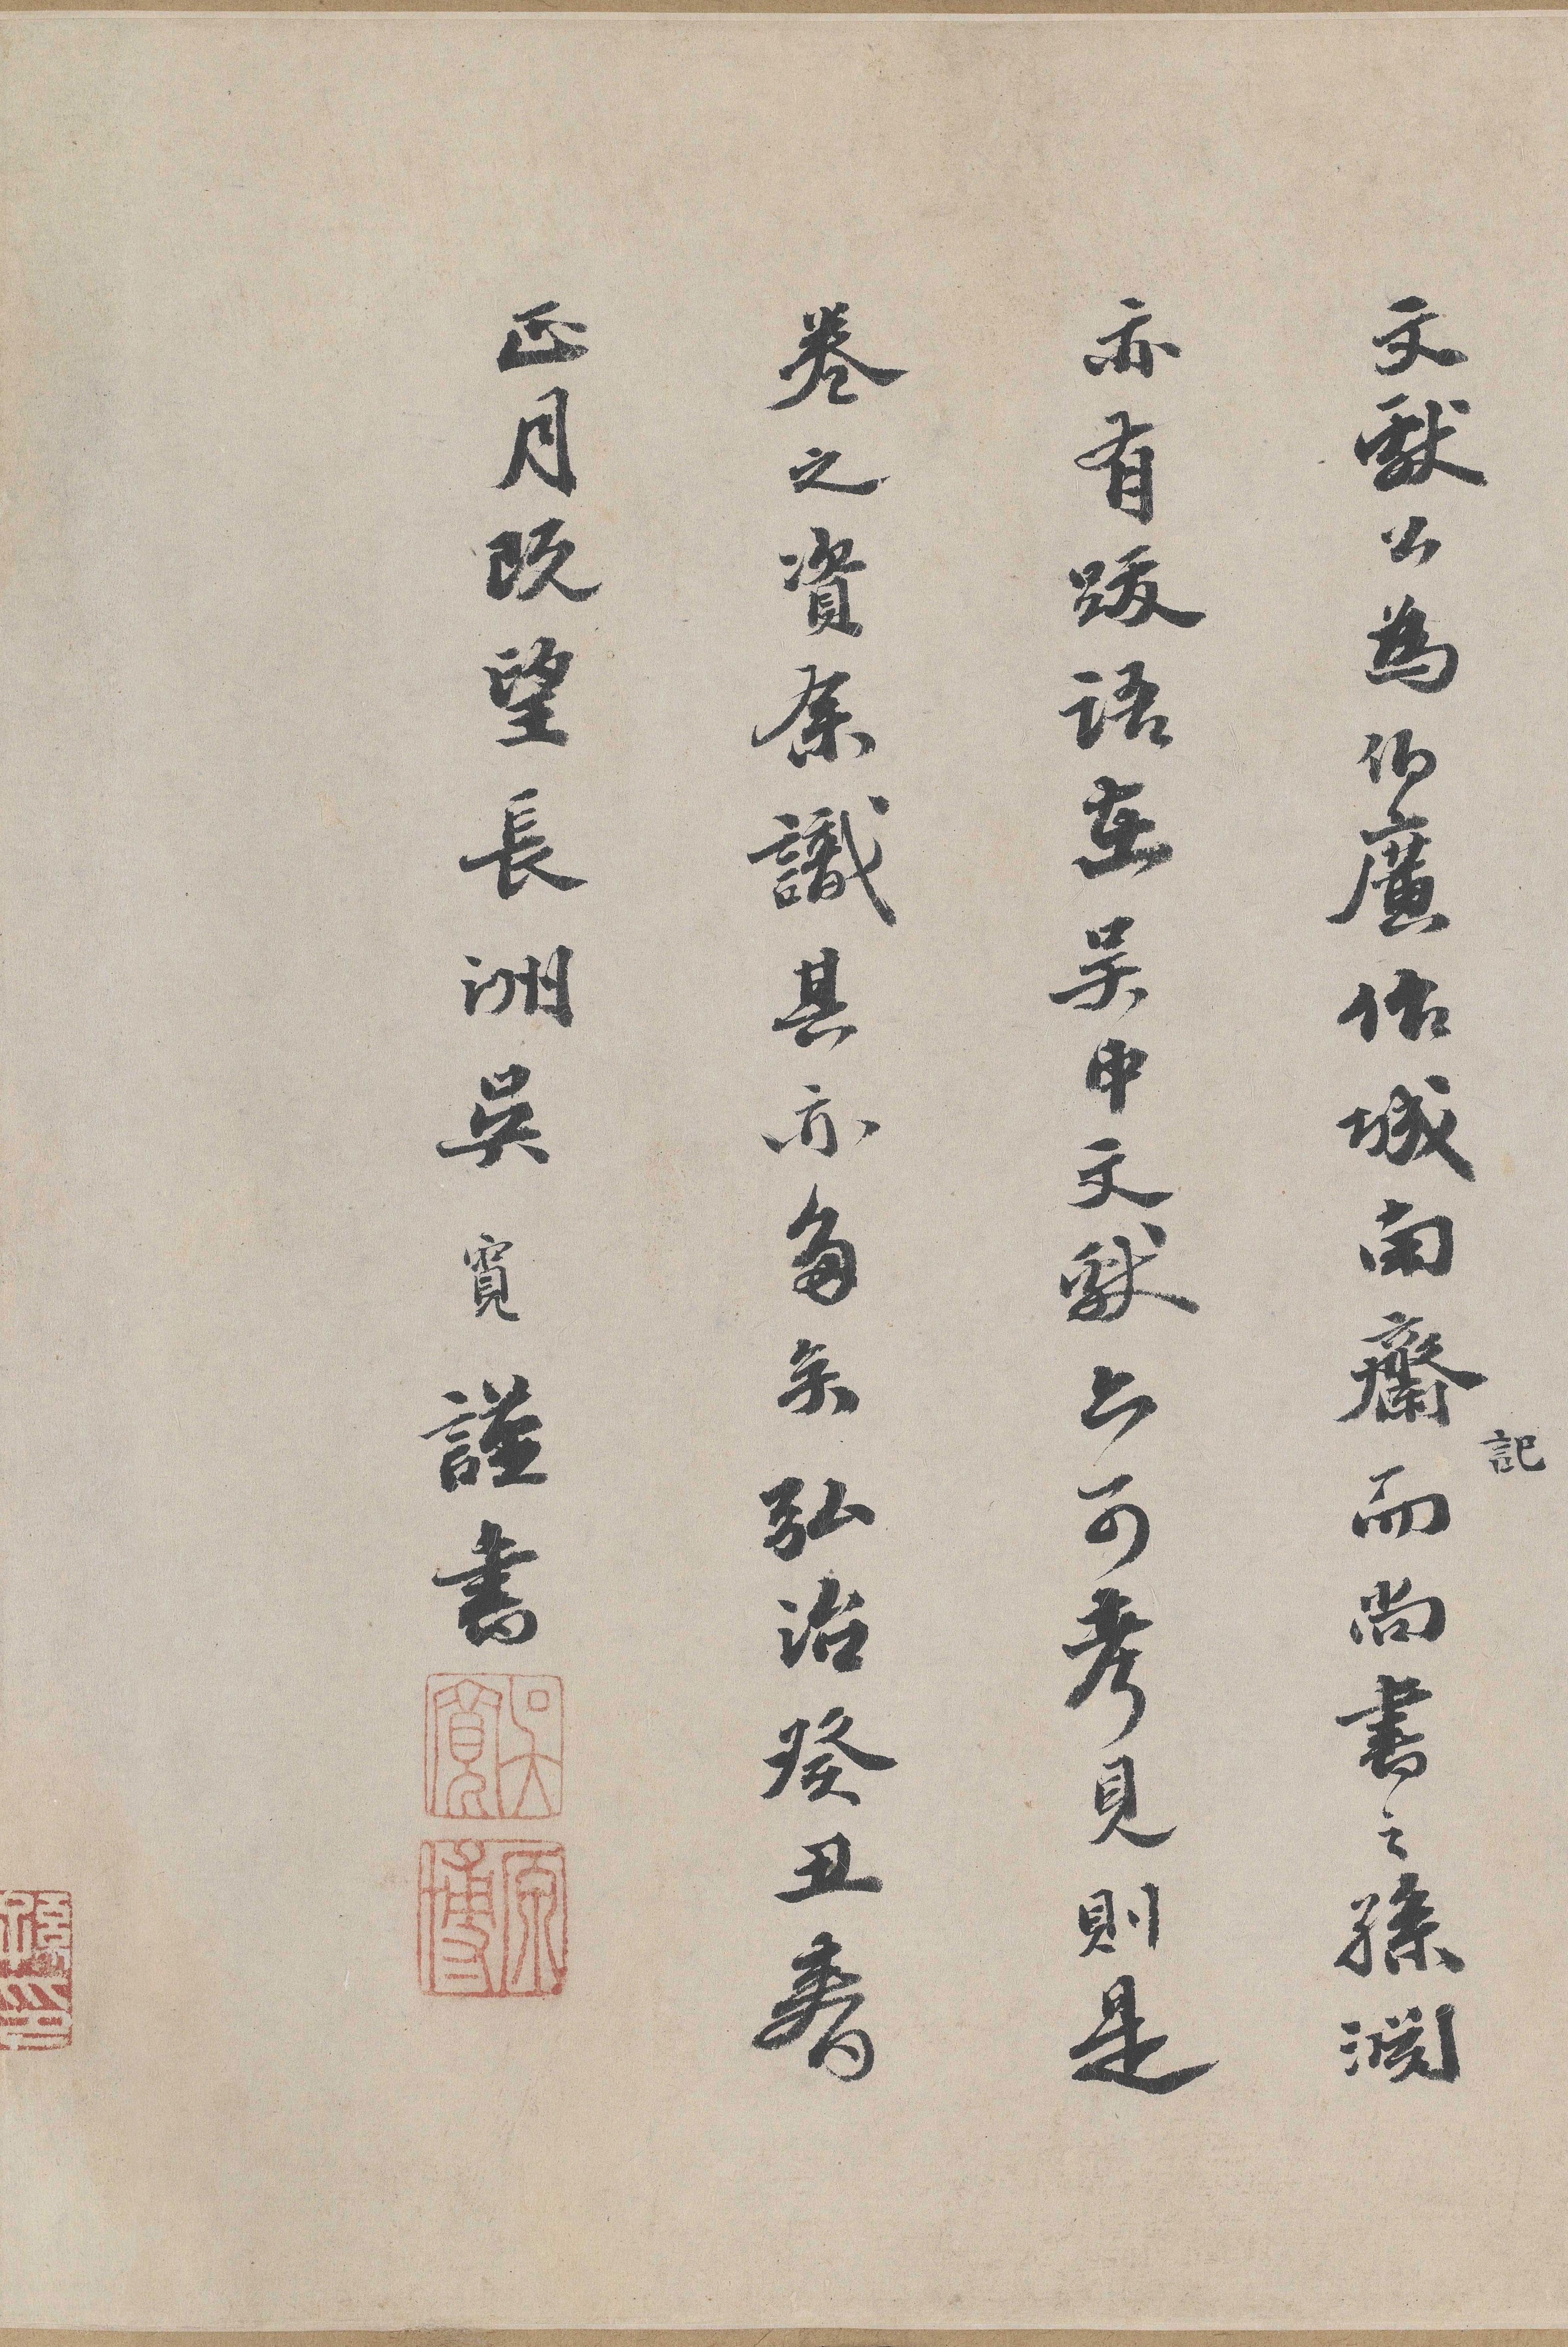 文獻公為伯廣作城南齋記而尚書之孫淵
亦有跋語在吳中文獻亦可考見則是
卷之資余識其亦多矣弘治癸丑春
正月既望長洲吳寬謹書
吳寬
原博